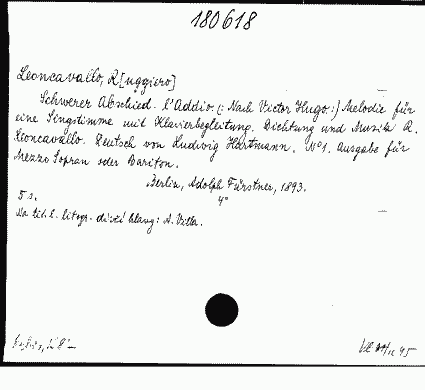 180618
Leoncavallo, R[uggiero]
Schwerer Abschied. L'Addio. (: Nach Victor Hugo :) Melodie für
eine Singstimme mit Klavierbegleitung. Dichtung und Musik R.
Leoncavallo. Deutsch von Ludwig Hartmann. No 1. Ausgabe für
Mezzo Sopran oder Bariton.
Berlin, Adolph Fürstner, 1893.
5 s. 4°
Na tit. l. litogr.